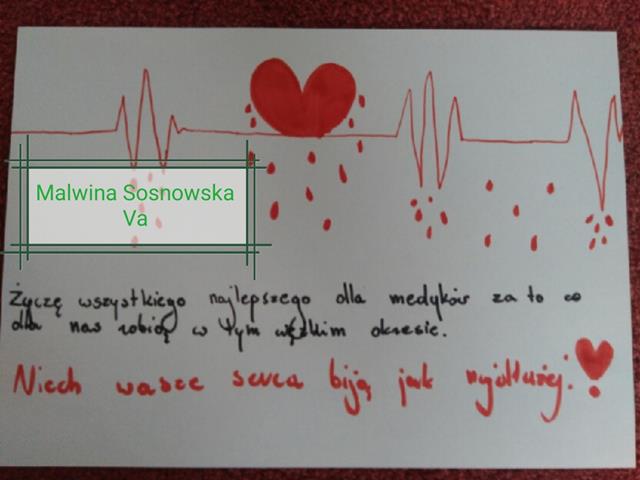 Malwina Sosnowska
Va
Życzę wszystkiego najlepszego dla medyków za to co
dla nas robią w tym ciężkim okresie.
Niech wasze serca biją jak najdłużej!